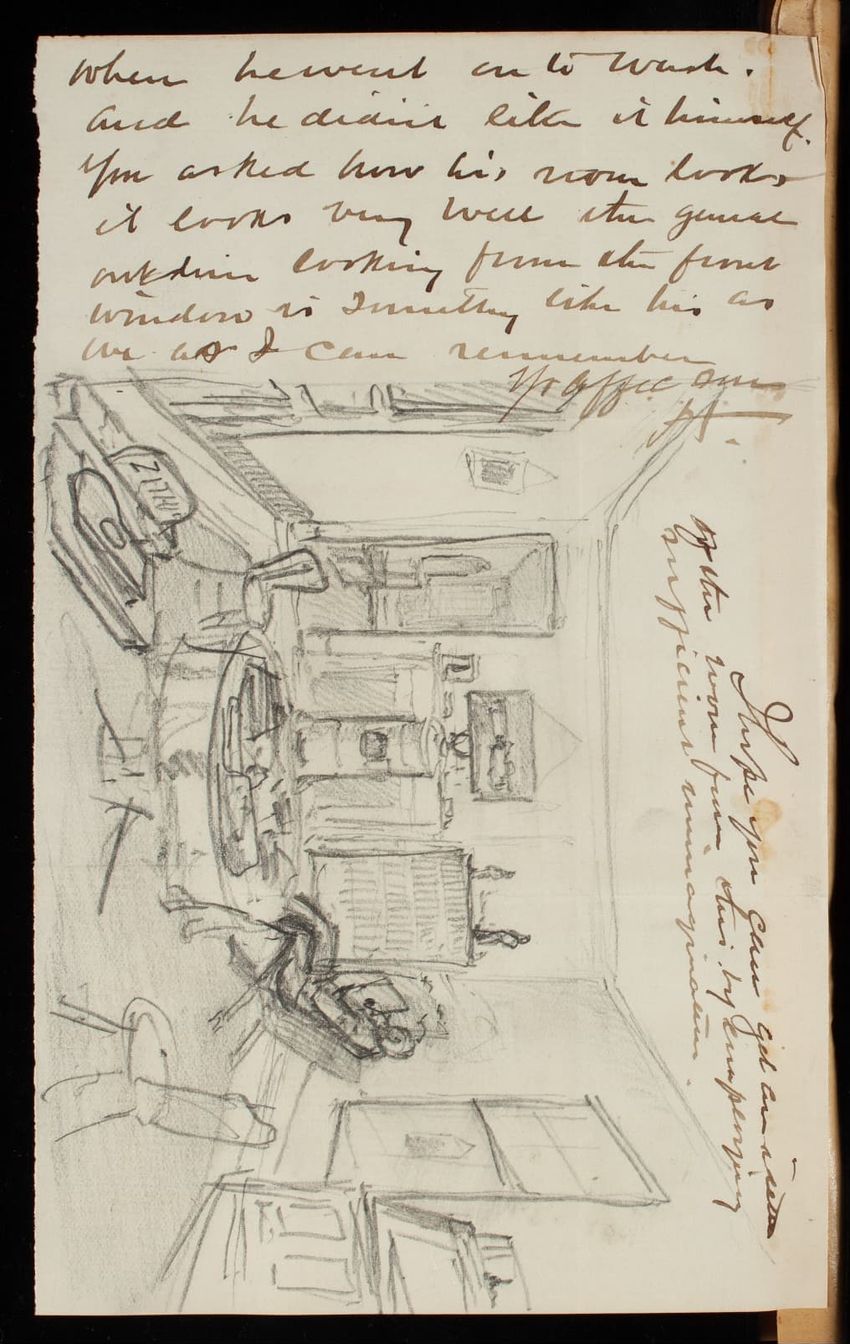 when he went on to wash.
and he didnt like it himself.
You asked how his room looks
it looks very well the genral
outline looking from the front
window is something like this as
as I can remember
Yr affec son
H.
I hope you can get an idea
of the room from this by employing
sufficient immagination.